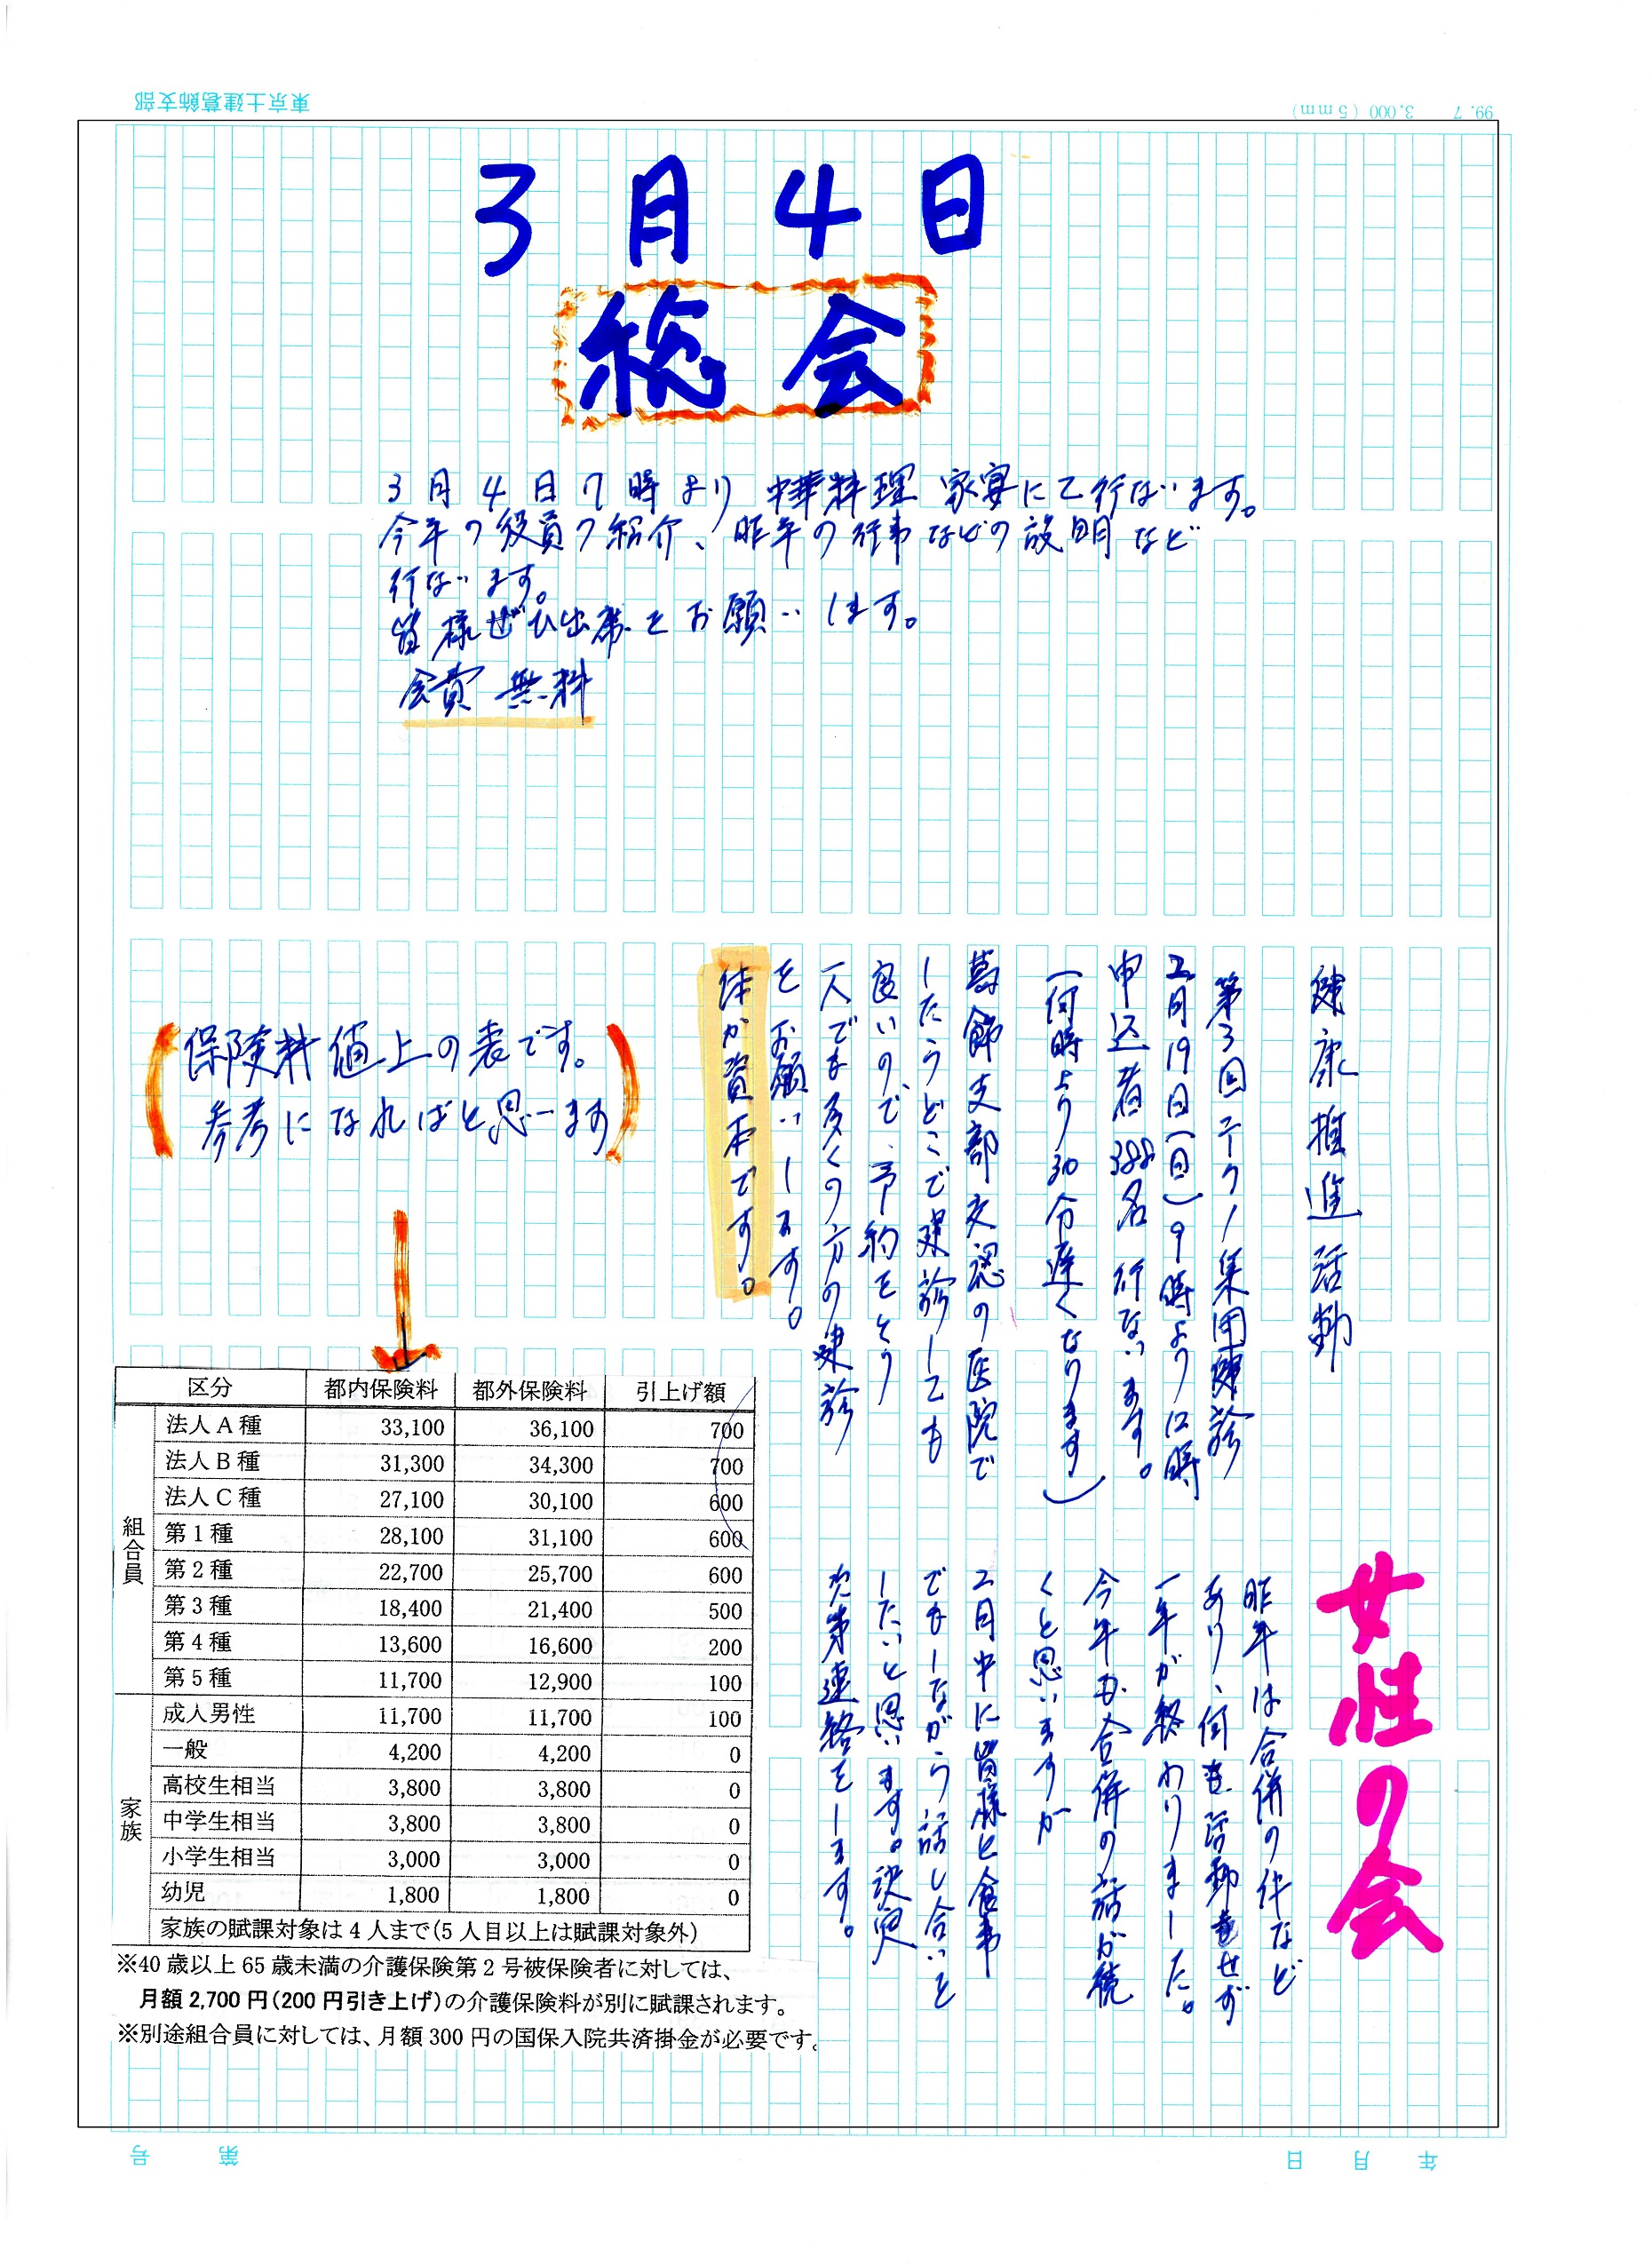 東京土建葛飾支部
99.7 3,000 (5mm)
3月4日
総会
3月4日7時より 中華料理 家宴にて行ないます。
今年の役員の紹介、昨年の行事などの説明など
行ないます。
皆様ぜひ出席をお願いします。
会費 無料
健康推進活動
第3回 エイクノ集団健診
2月19日(日)9時より12時
申込者388名 行ないます。
(何時より30分遅くなります)
葛飾支部交認の医院で
したらどこで健診しても
良いので、予約をとり
一人でも多くの方の健診
をお願いします。
体が資本です。
(保険料値上の表です。
参考になればと思います)
女性の会
昨年は合併の件など
あり、何も活動をせず
一年が終わりました。
今年も合併の話が続
くと思いますが
2月中に皆様と食事
でもしながら話し合いを
したいと思います。決定
次第連絡をします。
区分 都内保険料 都外保険料 引上げ額
組合員
法人A種 33,100 36,100 700
法人B種 31,300 34,300 700
法人C種 27,100 30,100 600
第1種 28,100 31,100 600
第2種 22,700 25,700 600
第3種 18,400 21,400 500
第4種 13,600 16,600 200
第5種 11,700 12,900 100
家族
成人男性 11,700 11,700 100
一般 4,200 4,200 0
高校生相当 3,800 3,800 0
中学生相当 3,800 3,800 0
小学生相当 3,000 3,000 0
幼児 1,800 1,800 0
家族の賦課対象は4人まで(5人目以上は賦課対象外)
※40歳以上65歳未満の介護保険第2号被保険者に対しては、
月額2,700円(200円引き上げ)の介護保険料が別に賦課されます。
※別途組合員に対しては、月額300円の国保入院共済掛金が必要です。
第 号
年 月 日